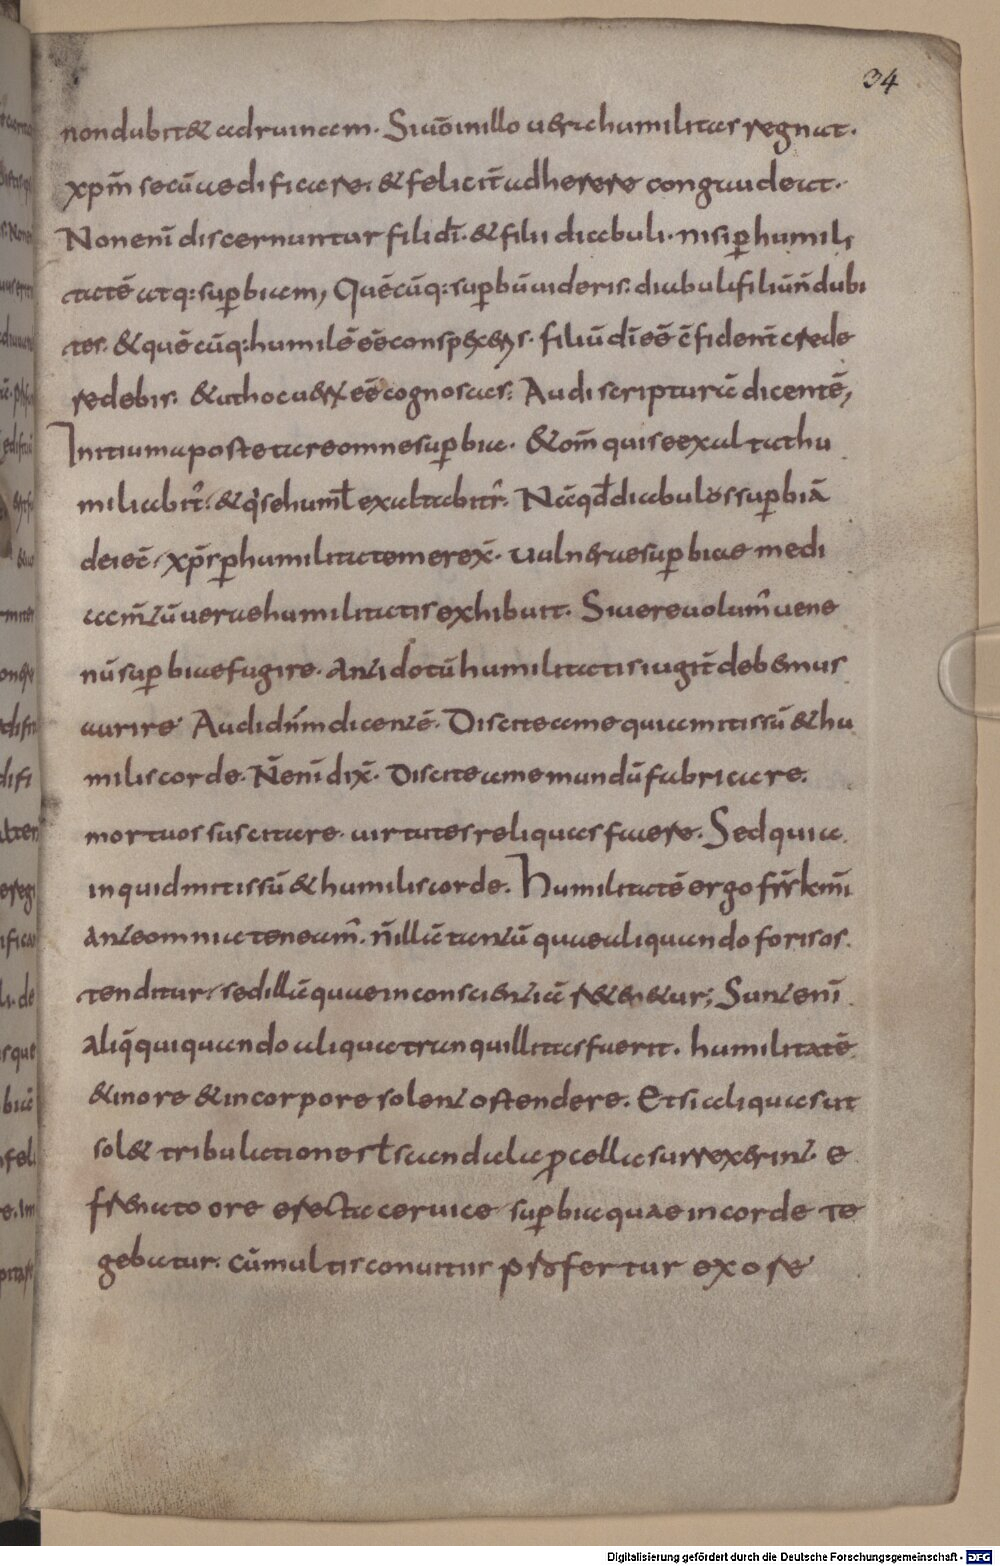 34
non dubit& ad ruinam. Si uō in illo uera humilitas regnat.
xp̄m secū aedificare. & felicit̄ adherere congaudeat.
Non enī discernuntur filii dī. & filii diabuli. nisi p̄ humili
tatē atq: sup̄biam, Quēcūq: sup̄bū uideris. diabuli filiū ñ dubi
tes. & quē cūq: humilē eē conspexerys. filiū dī eē c̄fident̄ crede
re debis. & ut hoc uerx eē cognoscas: Audi scripturā dicentē,
Initium apostetare omne sup̄bia. & om̄qui se exultat hu
miliabit̄. & q̇ se humł exaltabitr̄. Nā qd̄ diabulōs sup̄biā
deiec̄. xp̄s p̄ humilitatem erex̄. Uulnera esup̄biae medi
cam̄tū uerae humilitatis exhibuit. Si uere uolum̄ uene
nū sup̄biae fugire. antidotū humilitatis iugit̄ debemus
aurire Audi dn̄m dicentē. Discite a me quia mitis sū & hu
milis corde. N̄ enī dix̄. Discite a me mundū fabricare.
mortuos suscitare. uirtutes reliquas facere. Sed quia
inquid mitis sū & humilis corde. humilitatē ergo frr̄s km̄i
ante omnia teneam̄. ñ illā tantū quae aliquando foris os
tenditur. sed illā quae in conscientiā r&en&ur; Sunt enī
aliq̄ qui quando aliqua tranquillitas fuerit. humilitatē
& in ore & in corpore solent ostendere. Et si aliquas ut
sol& tribulationes ł scandala p̄cella surrexerint e
frenato ore erecta ceruice sup̄bia quae in corde te
gebatur. cū multis conuitiis prōfertur ex ore
Digitalisierung gefördert durch die Deutsche Forschungsgemeinschaft - DFG